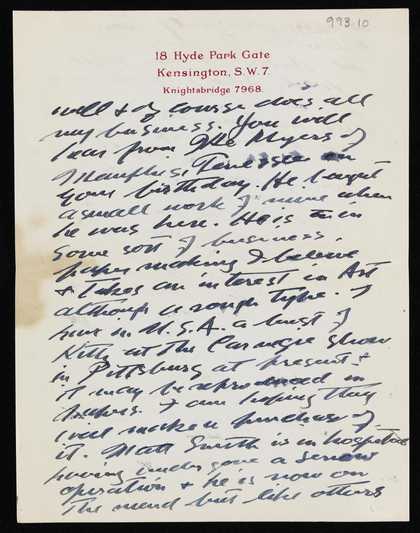 993.10
18 Hyde Park Gate
Kensington, S.W.7.
Knightsbridge 7968.
well & of course does all
my business. You will
hear from Myers of
Memphis, Tennessee on
your birthday. He bought
a small work of mine when
he was here. He is in
some sort of business,
paper making I believe
& takes an interest in Art
although a rough type. I
have in U.S.A. a bust of
Kitty at the Carnegie Show
in Pittsburg at present &
it may be reproduced in
I am hoping they
will make a purchase of
it. Matt Smith is in hospital
having undergone a serious
operation & he is now on
the mend but like others